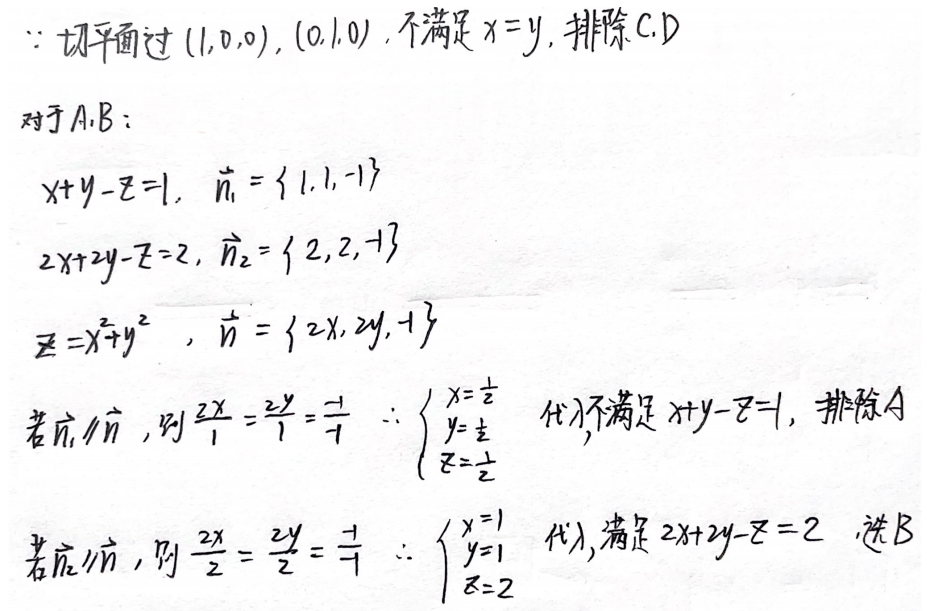 ∵ 切平面过 (1,0,0), (0,1,0), 不满足 x=y, 排除C.D
对于A.B:
x+y-z=1, n⃗₁={1,1,-1}
2x+2y-z=2, n⃗₂={2,2,-1}
z=x²+y², n⃗={2x,2y,-1}
若n⃗₁∥n⃗, 则 2x/1=2y/1=-1/-1 ∴ { x=1/2 y=1/2 z=1/2 代入,不满足 x+y-z=1, 排除A
若n⃗₂∥n⃗, 则 2x/2=2y/2=-1/-1 ∴ { x=1 y=1 z=2 代入,满足 2x+2y-z=2 .选B